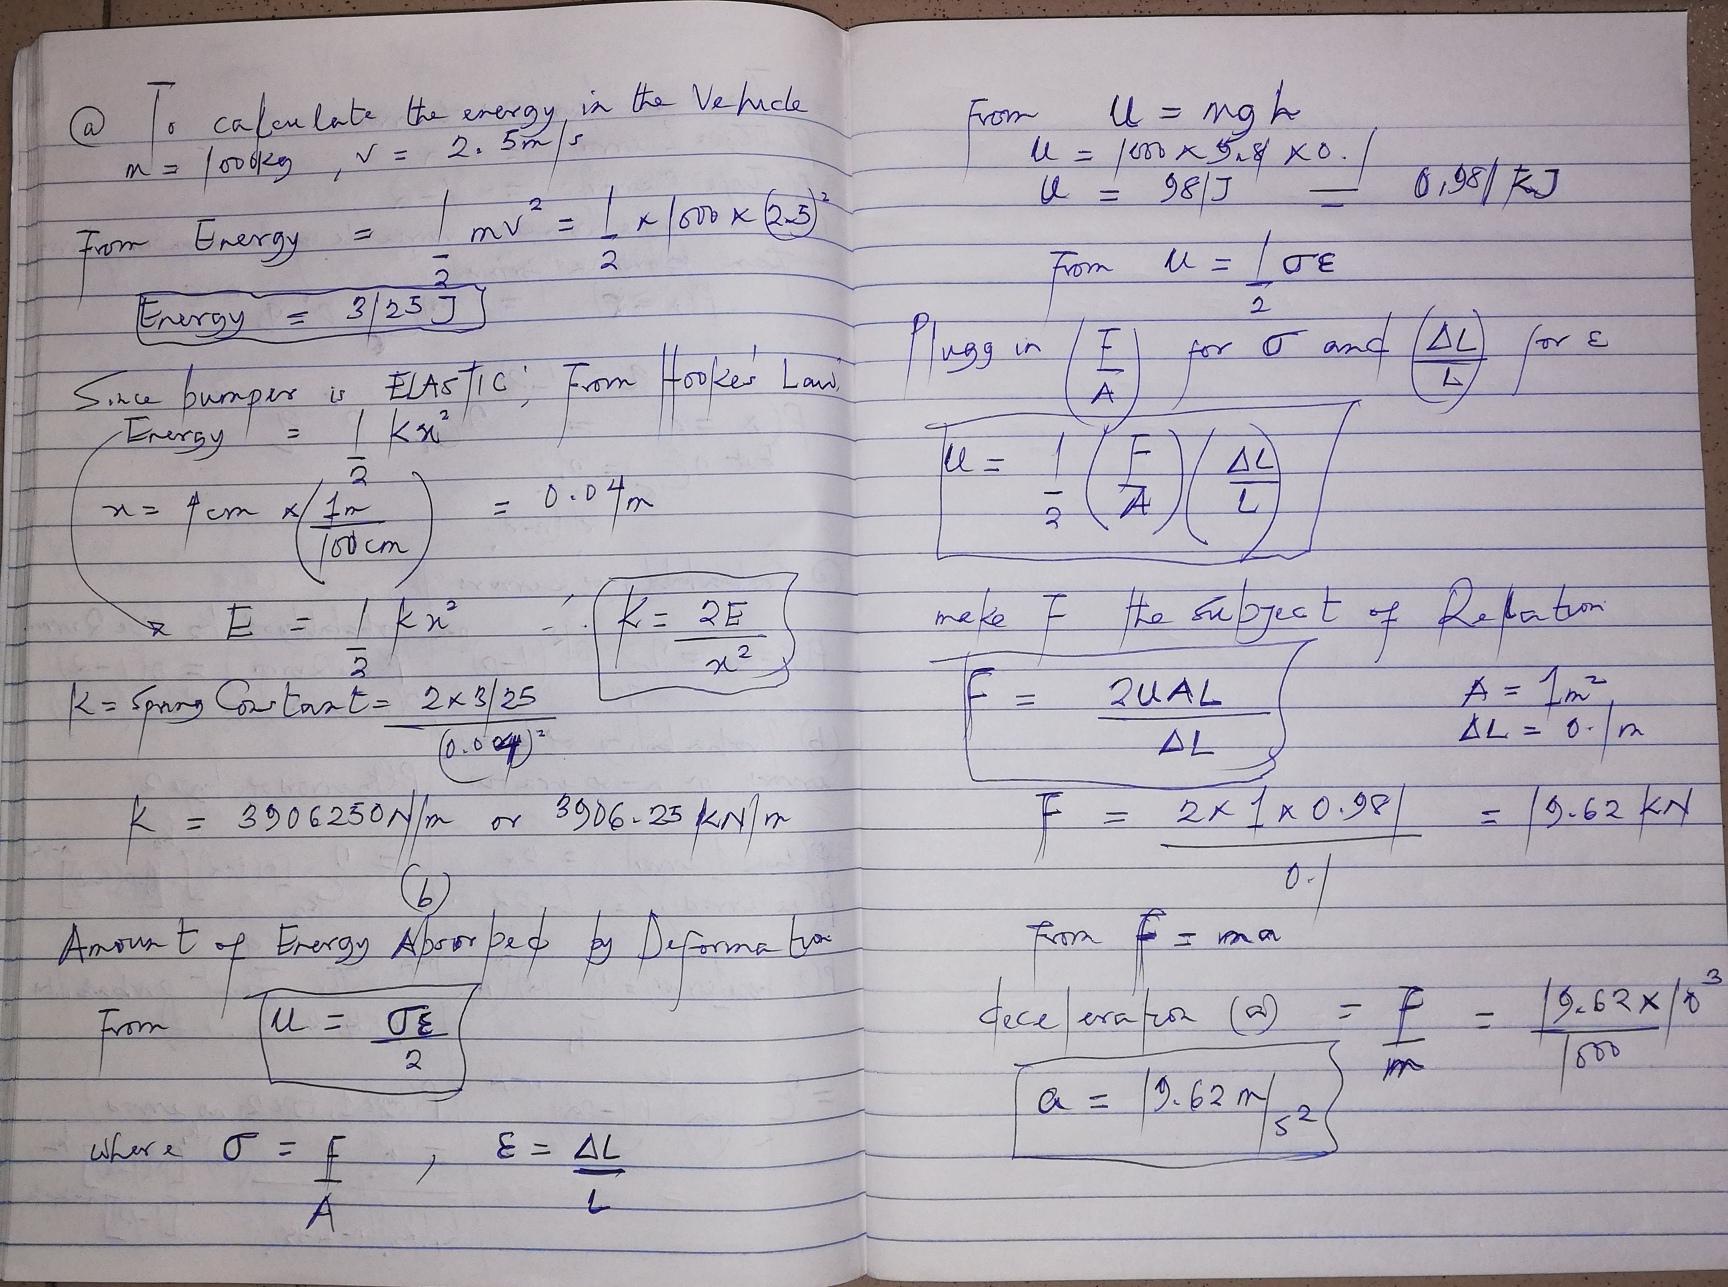 (a) To calculate the energy in the Vehicle
m = 1000kg , v = 2.5m/s
From Energy = 1/2 mv² = 1/2 x 1000 x (2.5)²
Energy = 3125 J
Since bumper is ELASTIC; From Hooke's Law;
Energy = 1/2 kx²
x = 4cm x (1m/100cm) = 0.04m
E = 1/2 kx² ∴ K = 2E/x²
K = Spring Constant = 2x3125/(0.04)²
K = 3906250N/m or 3906.25 kN/m
(b)
Amount of Energy Absorbed by Deformation
From U = σε/2
where σ = F/A , ε = ΔL/L
From U = mgh
U = 1000 x 9.81 x 0.1
U = 981J = 0.981 KJ
From U = 1/2 σε
Plugg in (F/A) for σ and (ΔL/L) for ε
U = 1/2 (F/A) (ΔL/L)
make F the subject of Relation
F = 2UAL/ΔL A = 1m²
ΔL = 0.1m
F = 2 x 1 x 0.981/0.1 = 19.62 kN
From F = ma
deceleration (a) = F/m = 19.62 x 10³/1000
a = 19.62 m/s²